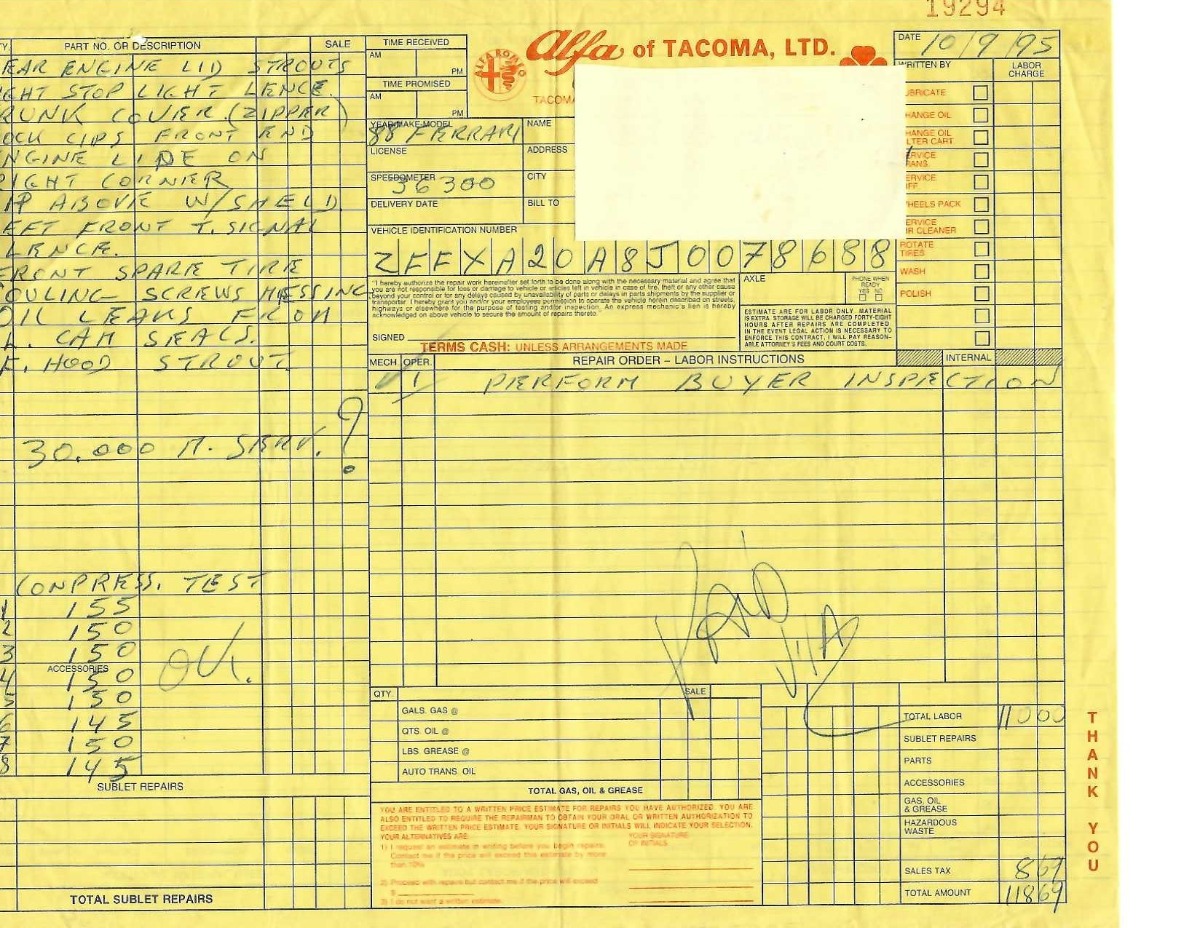 19294
PART NO. OR DESCRIPTION SALE
EAR ENGINE LID STROUTS
GHT STOP LIGHT LENCE.
RUNK COVER. (ZIPPER)
OCK CLIPS FRONT END
NGINE LIDE ON
RIGHT CORNIER
IP ABOVE W/SHELD
EFT FRONT T. SIGNAL
LENCE.
FRONT SPARE TIRE
COULING SCREWS MESSING
OIL LEAKS FROM
L. CAM SEALS.
F. HOOD STROUT
30.000 M. SERV. ?
COMPRESS. TEST
1 155
2 150
3 150
ACCESSORIES
4 150
5 150
6 145
7 150
8 145
OK.
SUBLET REPAIRS
TOTAL SUBLET REPAIRS
TIME RECEIVED
AM
PM
TIME PROMISED
AM
PM
ALFA ROMEO
Alfa of TACOMA, LTD.
TACOMA
DATE 10/9/95
WRITTEN BY
LABOR CHARGE
YEAR/MAKE/MODEL
88 FERRARI
NAME
LICENSE
ADDRESS
SPEEDOMETER
36300
CITY
DELIVERY DATE
BILL TO
VEHICLE IDENTIFICATION NUMBER
ZFFXA20A8J0078688
UBRICATE
HANGE OIL
HANGE OIL
LTER CART
ERVICE
RANS.
ERVICE
IFF.
HEELS PACK
ERVICE
IR CLEANER
ROTATE
TIRES
WASH
POLISH
"I hereby authorize the repair work hereinafter set forth to be done along with the necessary material and agree that
you are not responsible for loss or damage to vehicle or articles left in vehicle in case of fire, theft or any other cause
beyond your control or for any delays caused by unavailability of parts or delays in parts shipments by the supplier or
transporter. I hereby grant you and/or your employees permission to operate the vehicle herein described on streets,
highways or elsewhere for the purpose of testing and/or inspection. An express mechanic's lien is hereby
acknowledged on above vehicle to secure the amount of repairs thereto."
SIGNED
AXLE
PHONE WHEN
READY
YES NO
ESTIMATE ARE FOR LABOR ONLY, MATERIAL
IS EXTRA. STORAGE WILL BE CHARGED FORTY-EIGHT
HOURS AFTER REPAIRS ARE COMPLETED.
IN THE EVENT LEGAL ACTION IS NECESSARY TO
ENFORCE THIS CONTRACT, I WILL PAY REASON-
ABLE ATTORNEY'S FEES AND COURT COSTS.
TERMS CASH: UNLESS ARRANGEMENTS MADE
MECH OPER. REPAIR ORDER – LABOR INSTRUCTIONS INTERNAL
1 PERFORM BUYER INSPECTION
PAID
QTY. SALE
GALS. GAS @
QTS. OIL @
LBS. GREASE @
AUTO TRANS. OIL
TOTAL GAS, OIL & GREASE
YOU ARE ENTITLED TO A WRITTEN PRICE ESTIMATE FOR REPAIRS YOU HAVE AUTHORIZED. YOU ARE
ALSO ENTITLED TO REQUIRE THE REPAIRMAN TO OBTAIN YOUR ORAL OR WRITTEN AUTHORIZATION TO
EXCEED THE WRITTEN PRICE ESTIMATE. YOUR SIGNATURE OR INITIALS WILL INDICATE YOUR SELECTION.
YOUR ALTERNATIVES ARE:
YOUR SIGNATURE
OR INITIALS
1) I request an estimate in writing before you begin repairs.
Contact me if the price will exceed this estimate by more
than 10%
2) Proceed with repairs but contact me if the price will exceed
$
3) I do not want a written estimate.
TOTAL LABOR 110 00
SUBLET REPAIRS
PARTS
ACCESSORIES
GAS, OIL
& GREASE
HAZARDOUS
WASTE
SALES TAX 8 69
TOTAL AMOUNT 118 69
THANK YOU